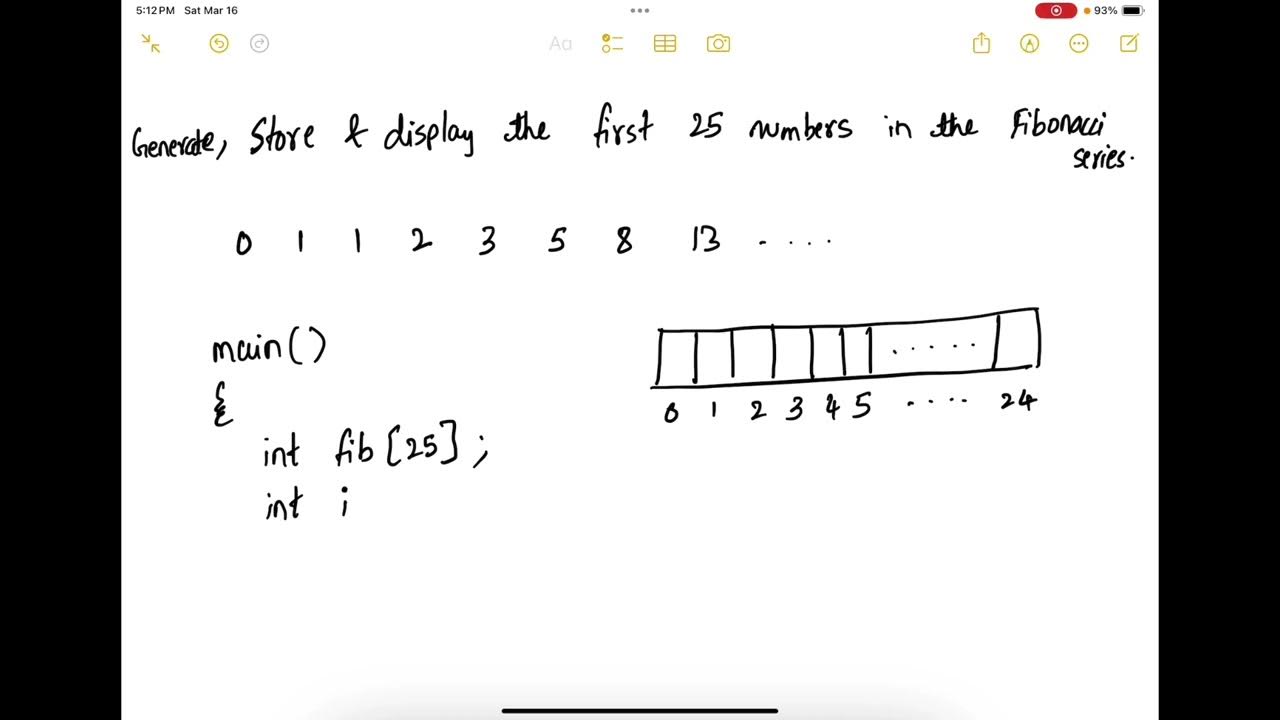 5:12 PM Sat Mar 16
93%
Aa
Generate, Store & display the first 25 numbers in the Fibonacci
series.
0 1 1 2 3 5 8 13 . . . .
main()
{
int fib [25] ;
int i
. . . . .
0 1 2 3 4 5 . . . . 24